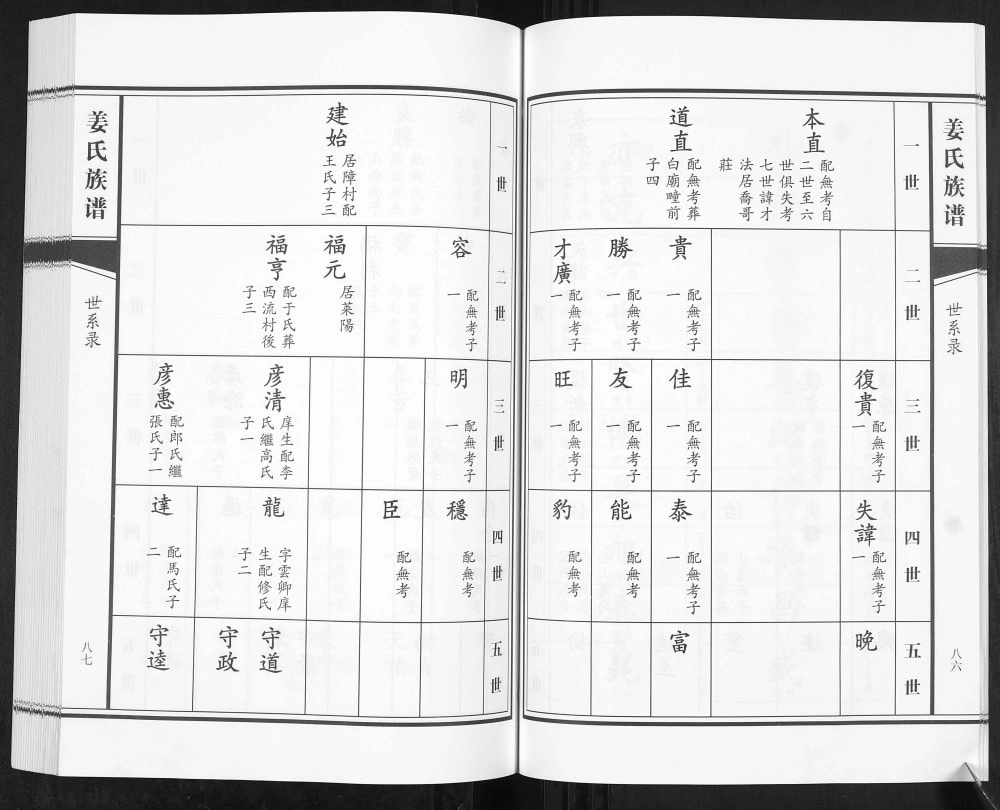 姜氏族谱
世系录
八六
一世
本直
配無考自
二世至六
世俱失考
七世諱才
法居喬哥
莊
道直
配無考葬
白廟疃前
子四
二世
貴
配無考子
一
勝
配無考子
一
才廣
配無考子
一
三世
復貴
配無考子
一
佳
配無考子
一
友
配無考子
一
旺
配無考子
一
四世
失諱
配無考子
一
泰
配無考子
一
能
配無考
豹
配無考
五世
晚
富
一世
建始
居障村配
王氏子三
二世
容
配無考子
一
福元
居萊陽
福亨
配于氏葬
西流村後
子三
三世
明
配無考子
一
彦清
庠生配李
氏繼高氏
子一
彦惠
配郎氏繼
張氏子一
四世
穩
配無考
臣
配無考
龍
字雲卿庠
生配修氏
子二
達
配馬氏子
二
五世
守道
守政
守逵
姜氏族谱
世系录
八七